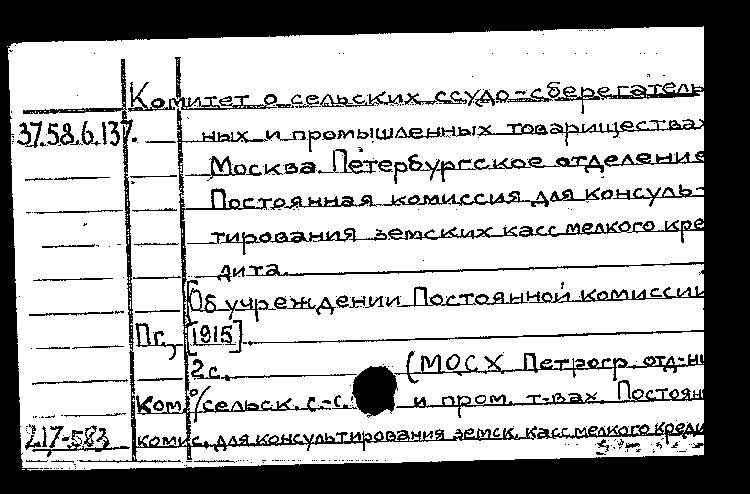 Комитет о сельских ссудо-сберегатель
37.58.6.137. ных и промышленных товариществах
Москва. Петербургское отделение
Постоянная комиссия для консуль-
тирования земских касс мелкого кре
дита.
[Об учреждении Постоянной комиссии
Пг., [1915].
2 с. (МОСХ Петрогр. отд-ни
Ком. о/сельск. с.-с. и пром. т-вах. Постоян
217-583 комис. для консультирования земск. касс мелкого креди